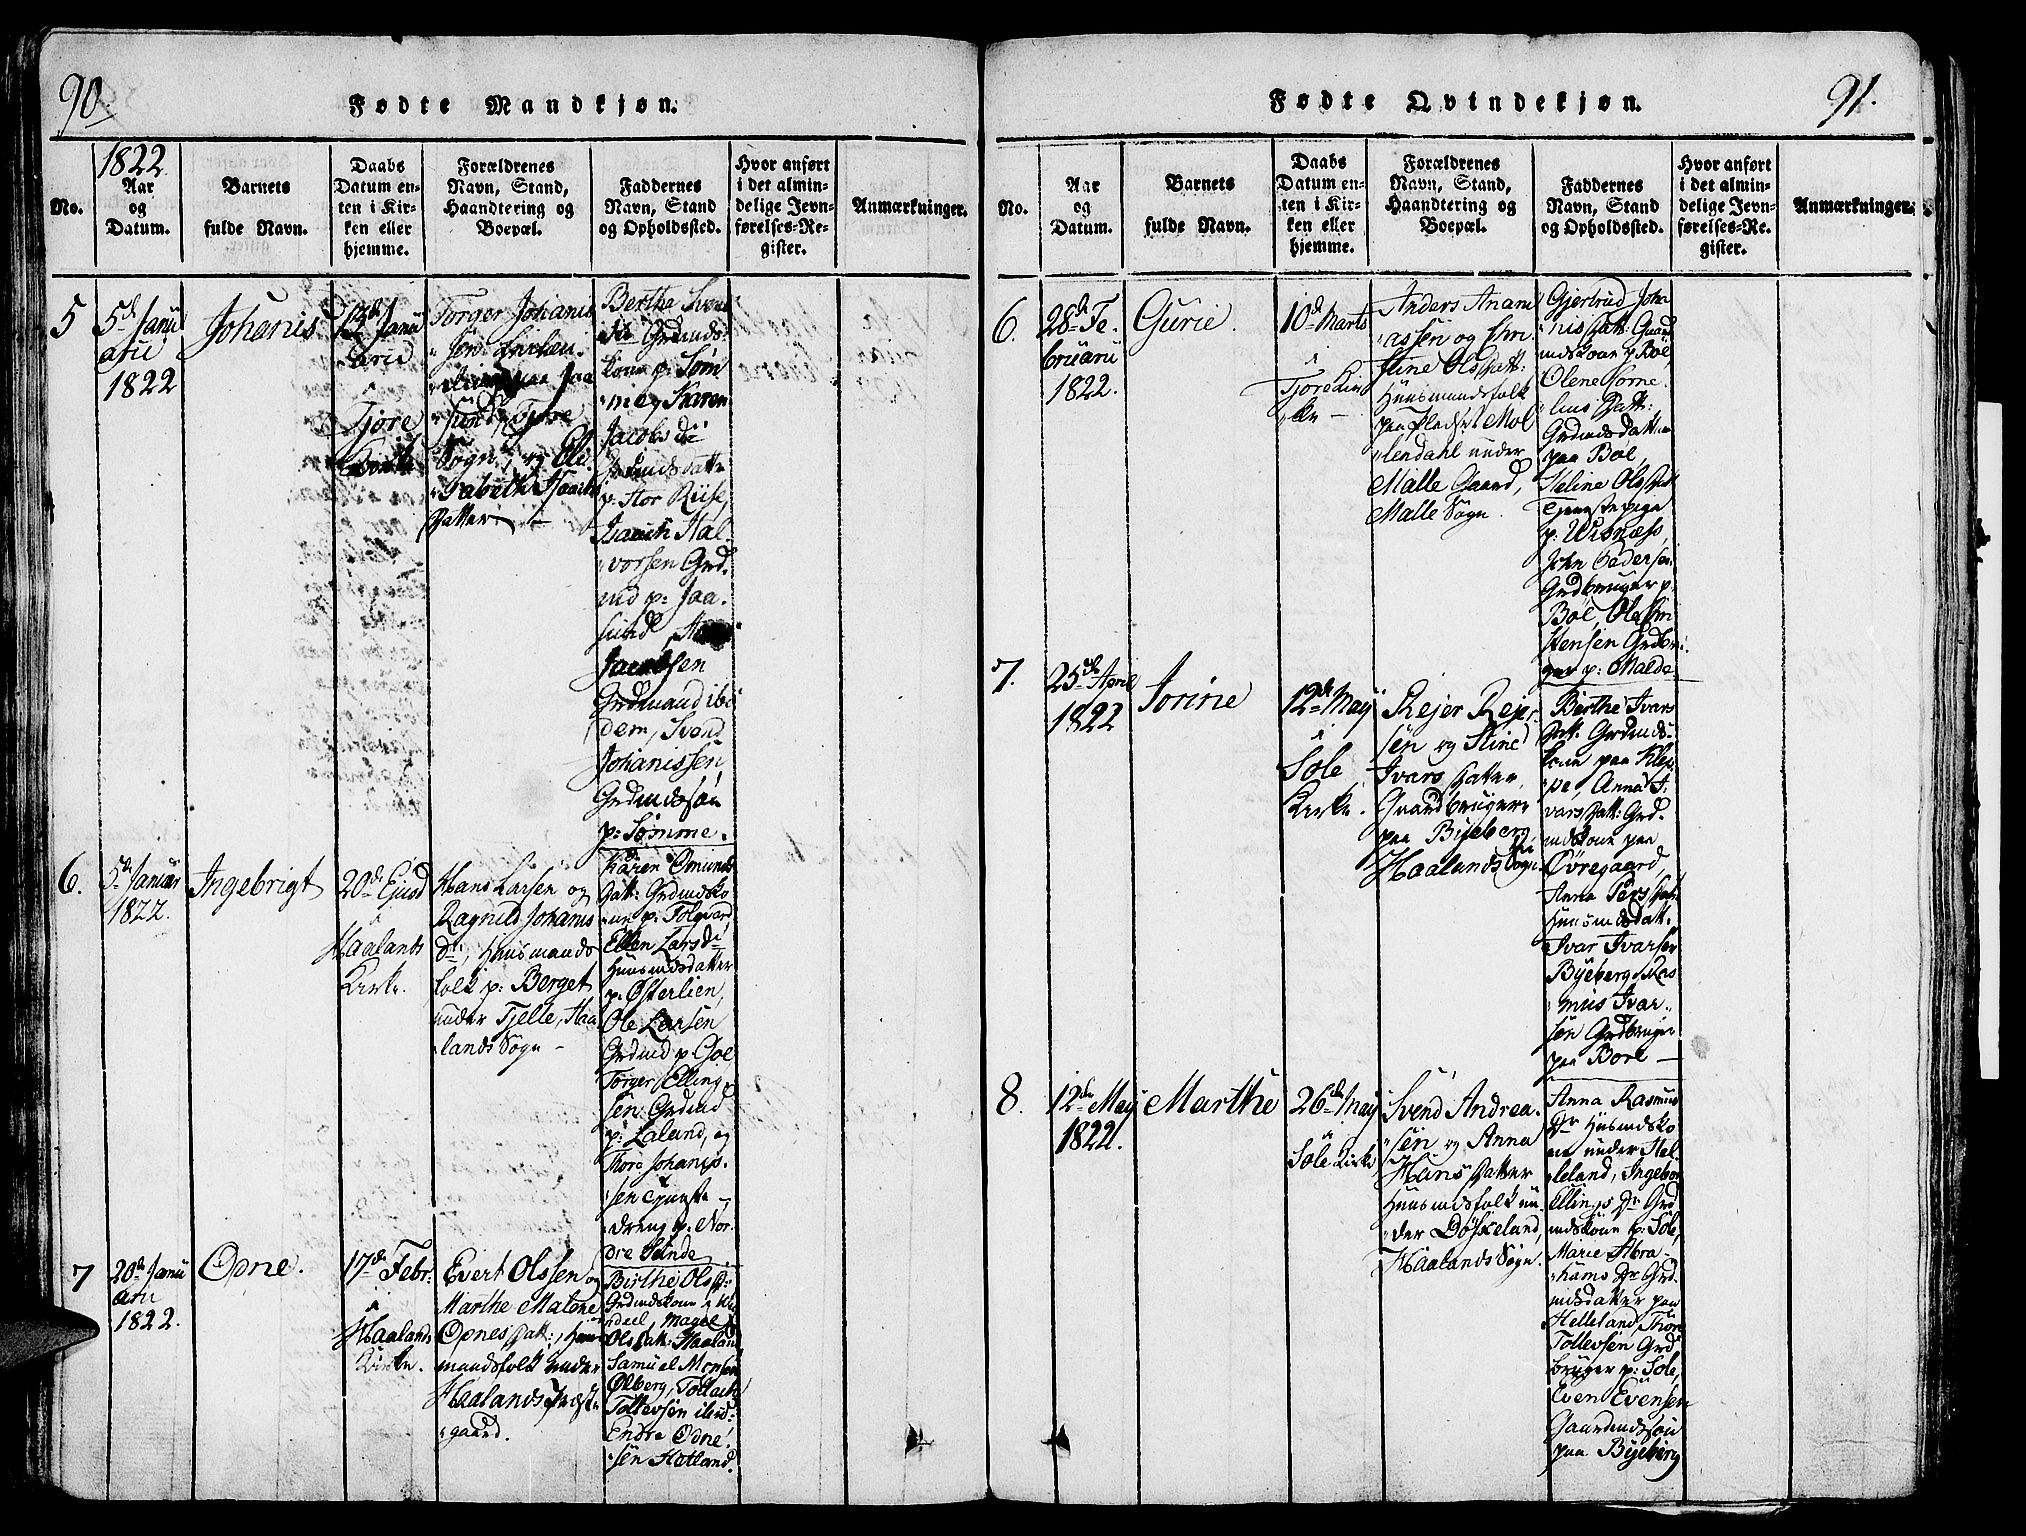 90.
Fødte Mandkjøn.
1822
No.
Aar
og
Datum.
Barnets
fulde Navn.
Daabs
Datum en-
ten i Kir-
ken eller
hjemme.
Forældrenes
Navn, Stand,
Haandtering og
Boepæl.
Faddernes
Navn, Stand
og Opholdssted.
Hvor anført
i det almin-
delige Jevn-
førelses-Re-
gister.
Anmærkninger.
5
5d Janu
arii
1822
Johanis
13d Janu
arii
i
Tjore
Kirke
Torger Johanis
Sen
paa Jaa
sund, Tjore
Sogn, og Eli
sabeth
Datter
Berthe Svens
dr Grdmands
kone p: Søm
me, Karen
Jacobs dr
Grdmdsdatter
p. Stor Riise,
Hal-
vorsen Grd-
md p: Jaa-
sund,
Jacobsen
Grdmand ibi
dem, Svend
Johanissen
Grdmdssøn
p: Sømme.
6.
5d Januar
1822.
Ingebrigt
20d Ejusd
i
Haalands
Kirke.
Hans Larsen og
Ragnild Johanis
dr, Huusmands
folk p: Berget
under Tjelle, Haa
lands Sogn
Karen Omunds
Datt: Grdmdsko
ne p: Folqvard
Ellen Larsdr
Huusmdsdatter
p: Østerlien,
Ole Larsen
Grdmd p. Goe
Torger Elling
sen Grdmd
p: Laland, og
Thore Johanis-
sen Tjeneste
dreng p: Nor-
dre Sunde
7
20d Janu
arii
1822.
Odne.
17d Febr:
i
Haalands
Kirke.
Evert Olssen og
Marthe Malene
Odnes Datt:, Huus
mandsfolk under
Haalands Præste
gaard.
Birthe Ols Dr
Grdmdskone
Olsdatt: Haaland
Samuel Monsen
Ølberg, Tollach
Tollevsen ibid:
Endre Odne
sen Hotland.
91.
Fødte Qvindekjøn.
No.
Aar
og
Datum.
Barnets
fulde Navn.
Daabs
Datum en-
ten i Kir-
ken eller
hjemme.
Forældrenes
Navn, Stand,
Haandtering og
Boepæl.
Faddernes
Navn, Stand
og Opholdssted.
Hvor anført
i det almin-
delige Jevn-
førelses-Re-
gister.
Anmærkninger.
6.
28d Fe.
bruarii
1822.
Gurie.
10d Marts
i
Tjore Kir
ke
Anders Anani
assen og Chri
stine Ols Datt:
Huusmandsfolk
paa Pladset Mol
lendahl under
Malle Gaard,
Malle Sogn.
Gjertrud Joha
nis Datt: Gaard
mdskone p. Boe,
Olene Corne-
lius Datt:
Grdmdsdatter
paa Boe,
Heline Ols Datt
Tjenestepige
p: Wisnæss,
John Pedersen
Grdbruger p:
Boe, Ole Chri
stensen Grdbru
ger p: Malde
7.
25de April
1822
Jorine
12d May
i
Sole
Kirke.
Rejer Rejer-
sen og Stine
Ivars Datter
Gaardbrugere
paa Byeberg
Haalands Sogn
Berthe Ivars
Datt: Grdmds-
kone paa Klep-
pe, Anna I-
vars Datt: Grd-
mdskone paa
Øvregaard,
Anna Pers Datt
Huusmdsdatt.
Ivar Ivarsen
Byeberg, Ras
mus Ivar-
sen Grdbruger
paa Bore
8.
12d May
1822.
Marthe
26d May
i
Sole Kirke
Svend Andrea-
sen og Anna
Hans Datter
Huusmdsfolk un-
der Døskeland,
Haalands Sogn.
Anna Rasmus
Dr Husmdsko
ne under Hel-
leland, Ingebor
Ellings Dr Grd
mdskone p: Sole,
Marie Abra-
hams Dr Grd-
mdsdatter paa
Helleland, Thore
Tollevsen Grd
bruger p: Sole,
Even Evensen
Gaardmdssøn
paa Byeberg